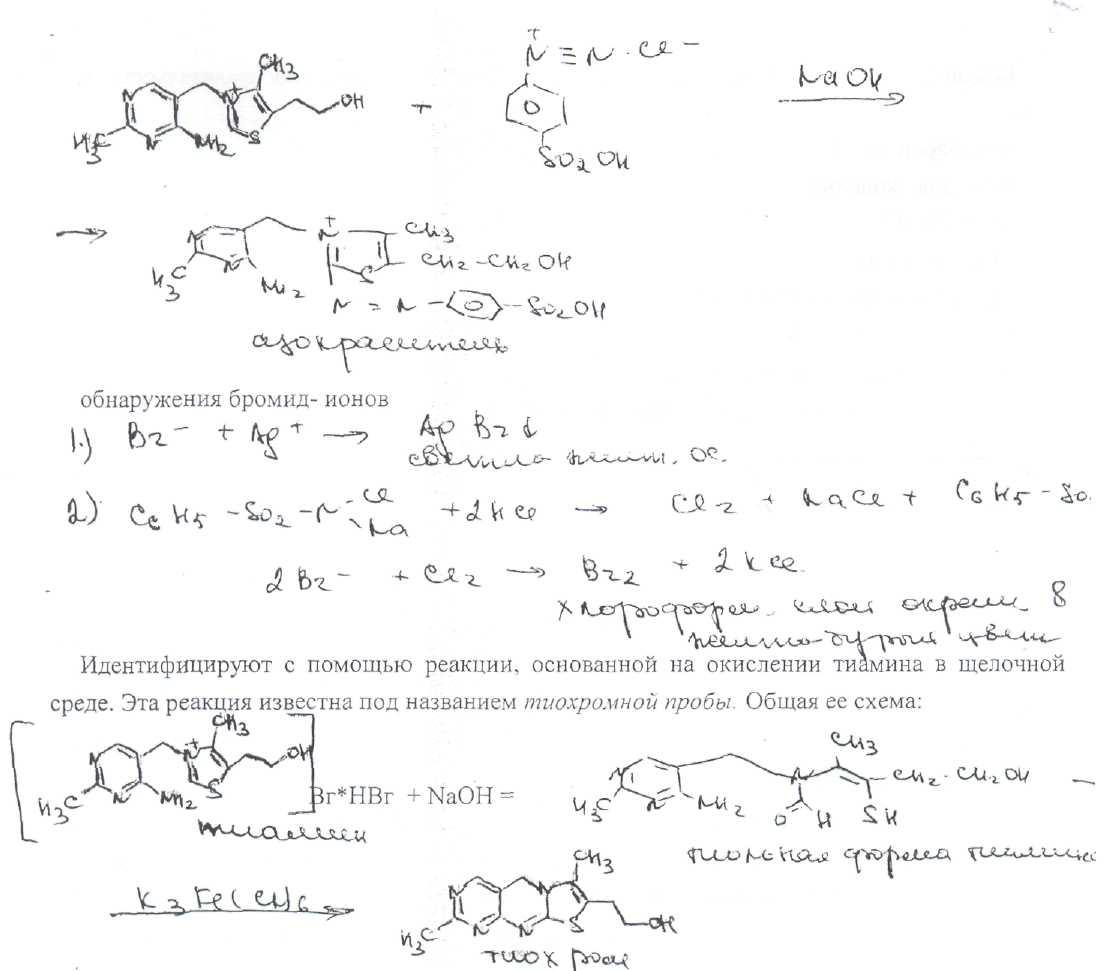 CH3
N + N OH + N ≡ N · Cl – NaOH
H3C N NH2 S SO2OH
N N + CH3
H3C N NH2 S CH2-CH2OH
N = N – – SO2OH
азокраситель
обнаружения бромид- ионов
1.) Br– + Ag+ → Ag Br↓
светло желт. ос.
2) C6H5 – SO2 – N Cl Na + 2HCl → Cl2 + NaCl + C6H5 – SO
2Br– + Cl2 → Br2 + 2KCl.
хлороформ. слой окраш в
желто-бурый цвет
Идентифицируют с помощью реакции, основанной на окислении тиамина в щелочной
среде. Эта реакция известна под названием тиохромной пробы. Общая ее схема:
CH3 CH3
N N+ OH Br*HBr + NaOH = N N CH2·CH2OH
H3C N NH2 S H3C N NH2 O H SH
тиамин тиольная форма тиамина
K3Fe(CN)6
CH3
N N OH
H3C N N S
тиохром